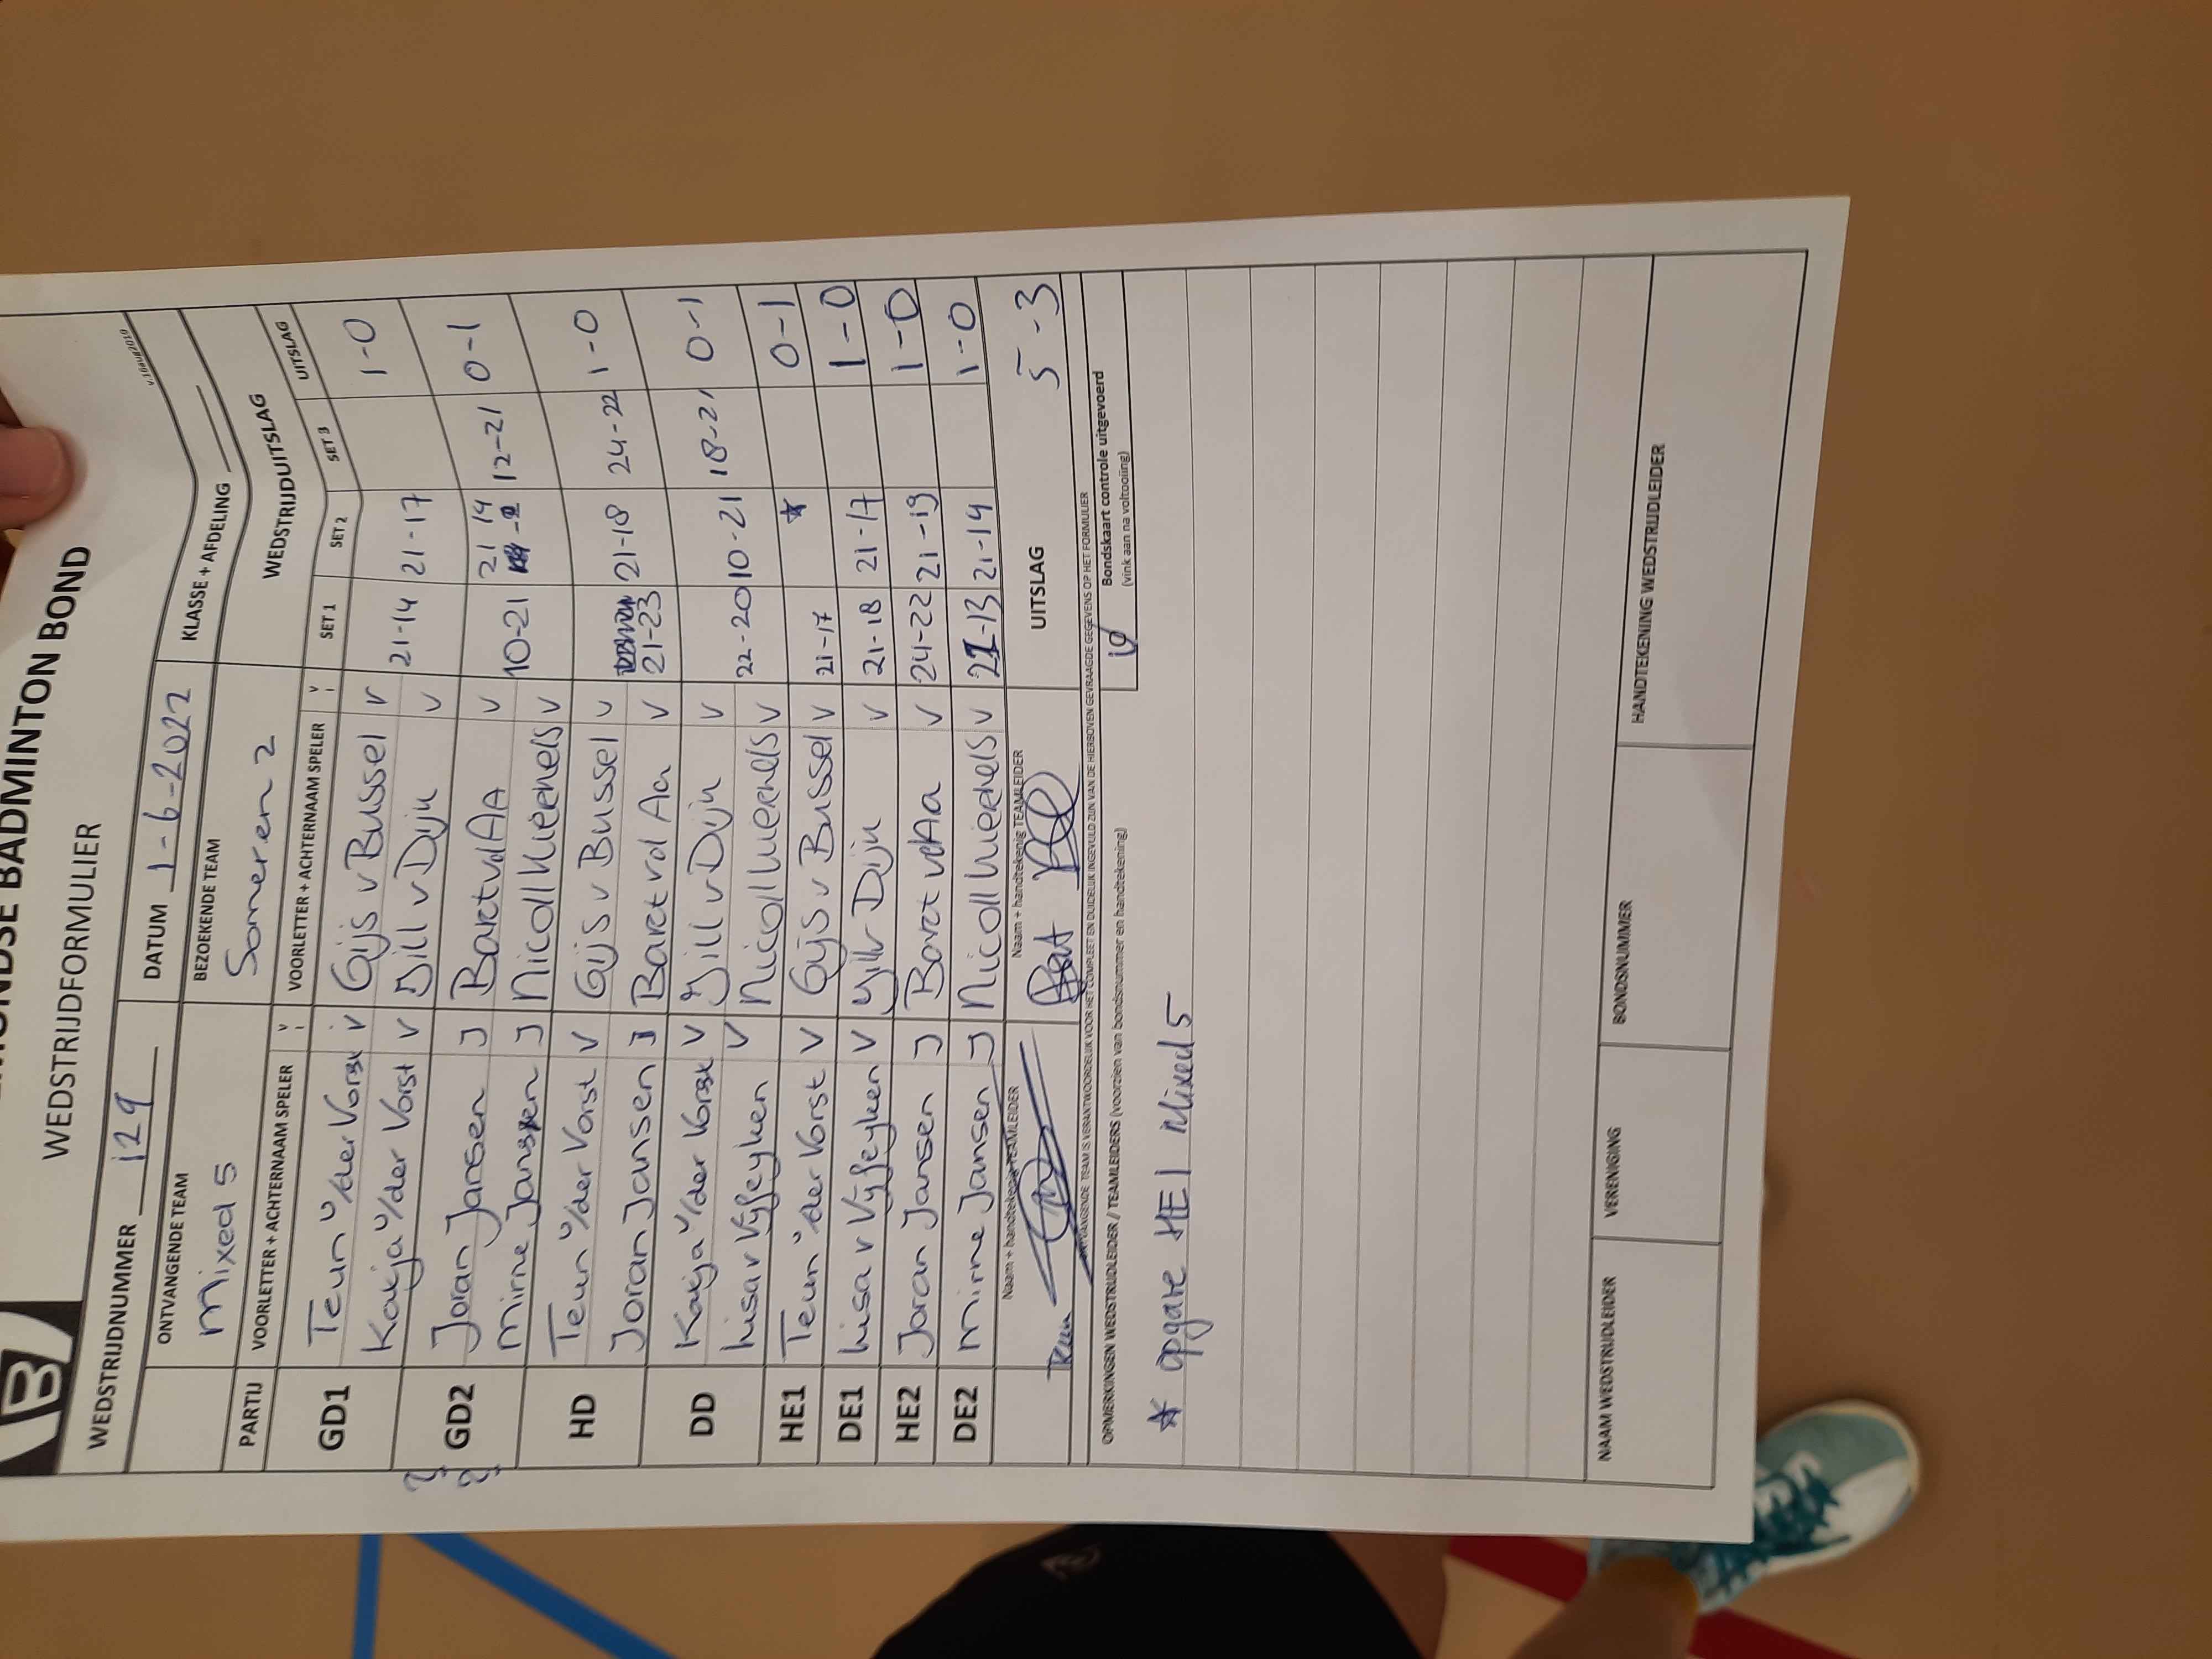 BADMINTON BOND
WEDSTRIJDFORMULIER
v.16aug2019
WEDSTRIJDNUMMER 129 DATUM 1-6-2022 KLASSE + AFDELING
ONTVANGENDE TEAM BEZOEKENDE TEAM
Mixed 5 Someren 2 WEDSTRIJDUITSLAG
PARTIJ VOORLETTER + ACHTERNAAM SPELER V VOORLETTER + ACHTERNAAM SPELER V SET 1 SET 2 SET 3 UITSLAG
GD1 Teun v/der Vorst V Gijs v Bussel V 21-14 21-17 1-0
Katja v/der Vorst V Jill v Dijk V
GD2 Joran Jansen J Bart vd AA V 10-21 21 14 12-21 0-1
Mirne Jansen J Nicoll Mieenels V
HD Teun v/der Vorst V Gijs v Bussel V 21-23 21-18 24-22 1-0
Joran Jansen J Bart vd Aa V
DD Katja v/der Vorst V Jill v Dijk V 22-20 10-21 18-21 0-1
Lisa v Vijfeyken V Nicoll V
HE1 Teun v/der Vorst V Gijs v Bussel V 21-17 * 0-1
DE1 Lisa v Vijfeyken V Jill v Dijk V 21-18 21-17 1-0
HE2 Joran Jansen J Bart vd Aa V 24-22 21-19 1-0
DE2 Mirne Jansen J Nicoll V 21-13 21-14 1-0
Naam + handtekenig TEAMLEIDER Naam + handtekenig TEAMLEIDER UITSLAG 5-3
Teun Bart
ONTVANGENDE TEAM IS VERANTWOORDELIJK VOOR HET COMPLEET EN DUIDELIJK INGEVULD ZIJN VAN DE HIERBOVEN GEVRAAGDE GEGEVENS OP HET FORMULIER
OPMERKINGEN WEDSTRIJDLEIDER / TEAMLEIDERS (voorzien van bondsnummer en handtekening) Bondskaart controle uitgevoerd
(vink aan na voltooiing)
* opgave HE1 Mixed 5
NAAM WEDSTRIJDLEIDER VERENIGING BONDSNUMMER HANDTEKENING WEDSTRIJDLEIDER